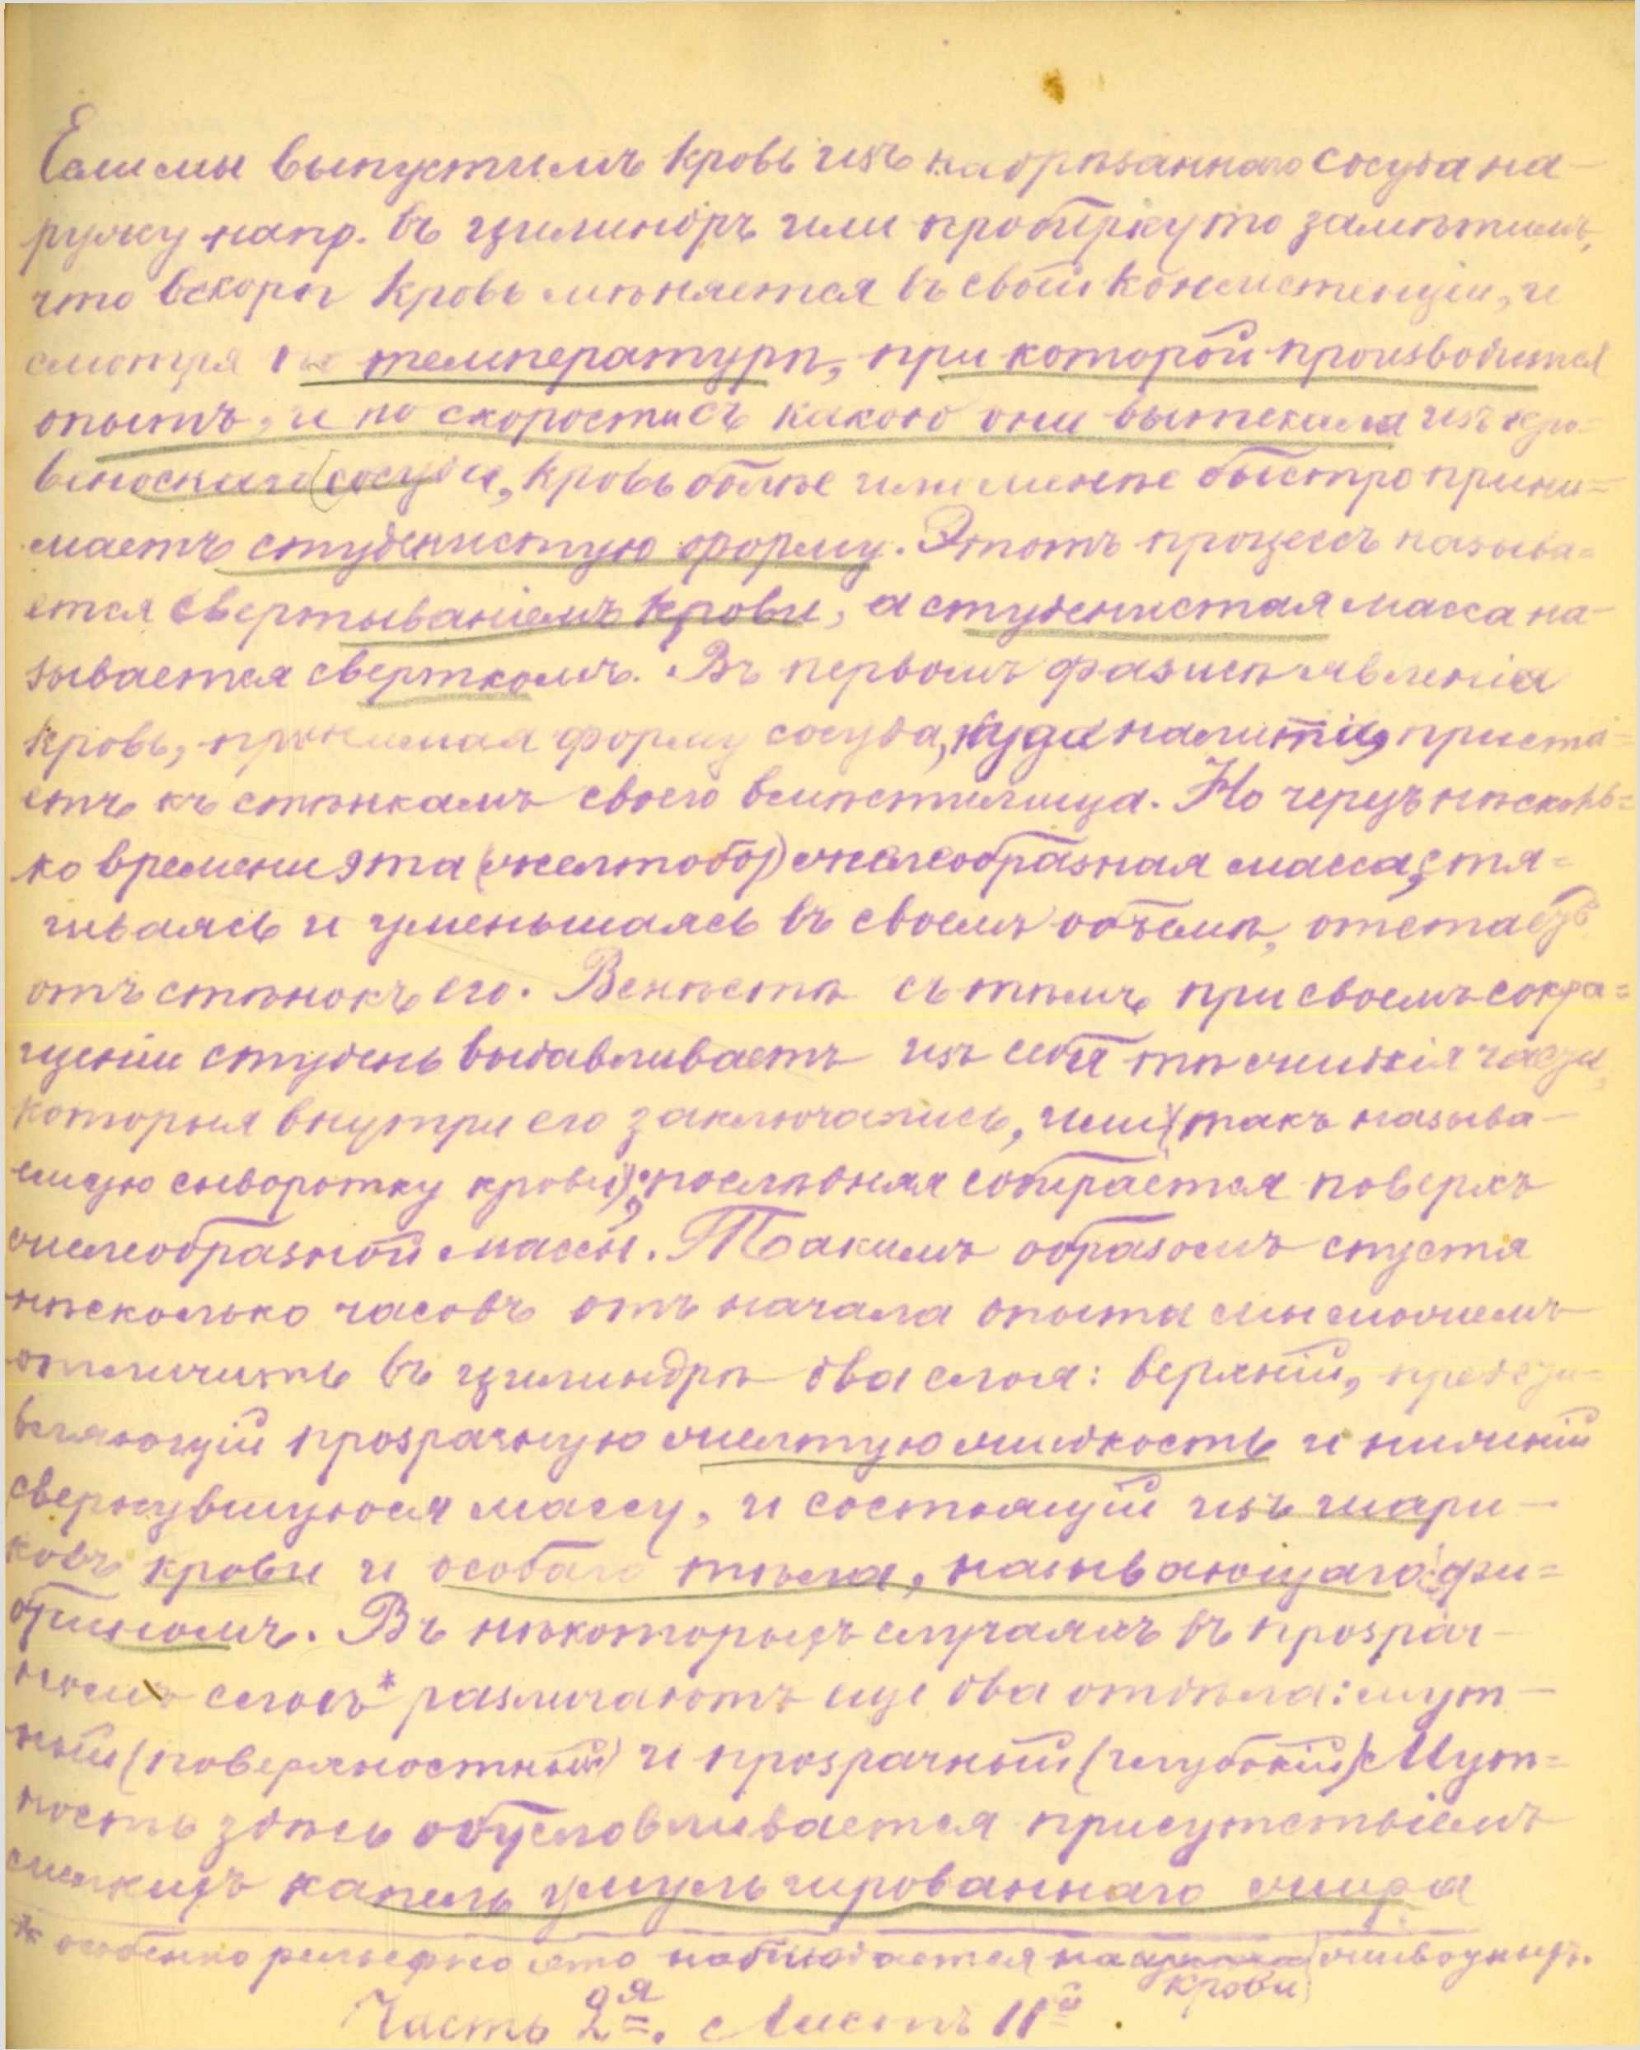 Если мы выпустимъ кровь изъ надрѣзаннаго сосуда на-
ружу напр. въ цилиндръ или пробирку то замѣтимъ,
что вскорѣ кровь мѣняется въ своей консистенціи, и
смотря по температурѣ, при которой производится
опытъ, и по скорости съ какою они вытекала изъ кро-
веноснаго (сосуда, кровь болѣе или менѣе быстро прини=
маетъ студенистую форму. Этотъ процессъ называ=
ется свертываніемъ крови, а студенистая масса на-
зывается сверткомъ. Въ первомъ фазисѣ явленія
кровь, принимая форму сосуда, куда налита, приста=
етъ къ стѣнкамъ своего вмѣстилища. Но черезъ нѣсколь=
ко времени эта (желтобо) желеобразная масса, стя=
гиваясь и уменьшаясь въ своемъ объемѣ, отстаетъ
отъ стѣнокъ его. Вмѣстѣ съ тѣмъ при своемъ сокра=
щеніи студень выдавливаетъ изъ себя тѣ жидкія части,
которыя внутри его заключались, или (такъ называ-
емую сыворотку крови); послѣдняя собирается поверхъ
желеобразной массы. Такимъ образомъ спустя
нѣсколько часовъ отъ начала опыта мы можемъ
отличить въ цилиндрѣ два слоя: верхній, предста=
вляющій прозрачную желтую жидкость и нижній
свернувшуюся массу, и состоящій изъ шари-
ковъ крови и особаго тѣла, называющаго фи=
бриномъ. Въ нѣкоторыхъ случаяхъ въ прозрач-
номъ слоѣ* различаютъ еще два отдѣла: мут-
ный (поверхностный) и прозрачный (глубокій). Мут=
ность здѣсь обусловливается присутствіемъ
мелкихъ капель эмульгированнаго жира
* особенно рельефно это наблюдается на крови животныхъ.
Часть 2я. Листъ 11й.